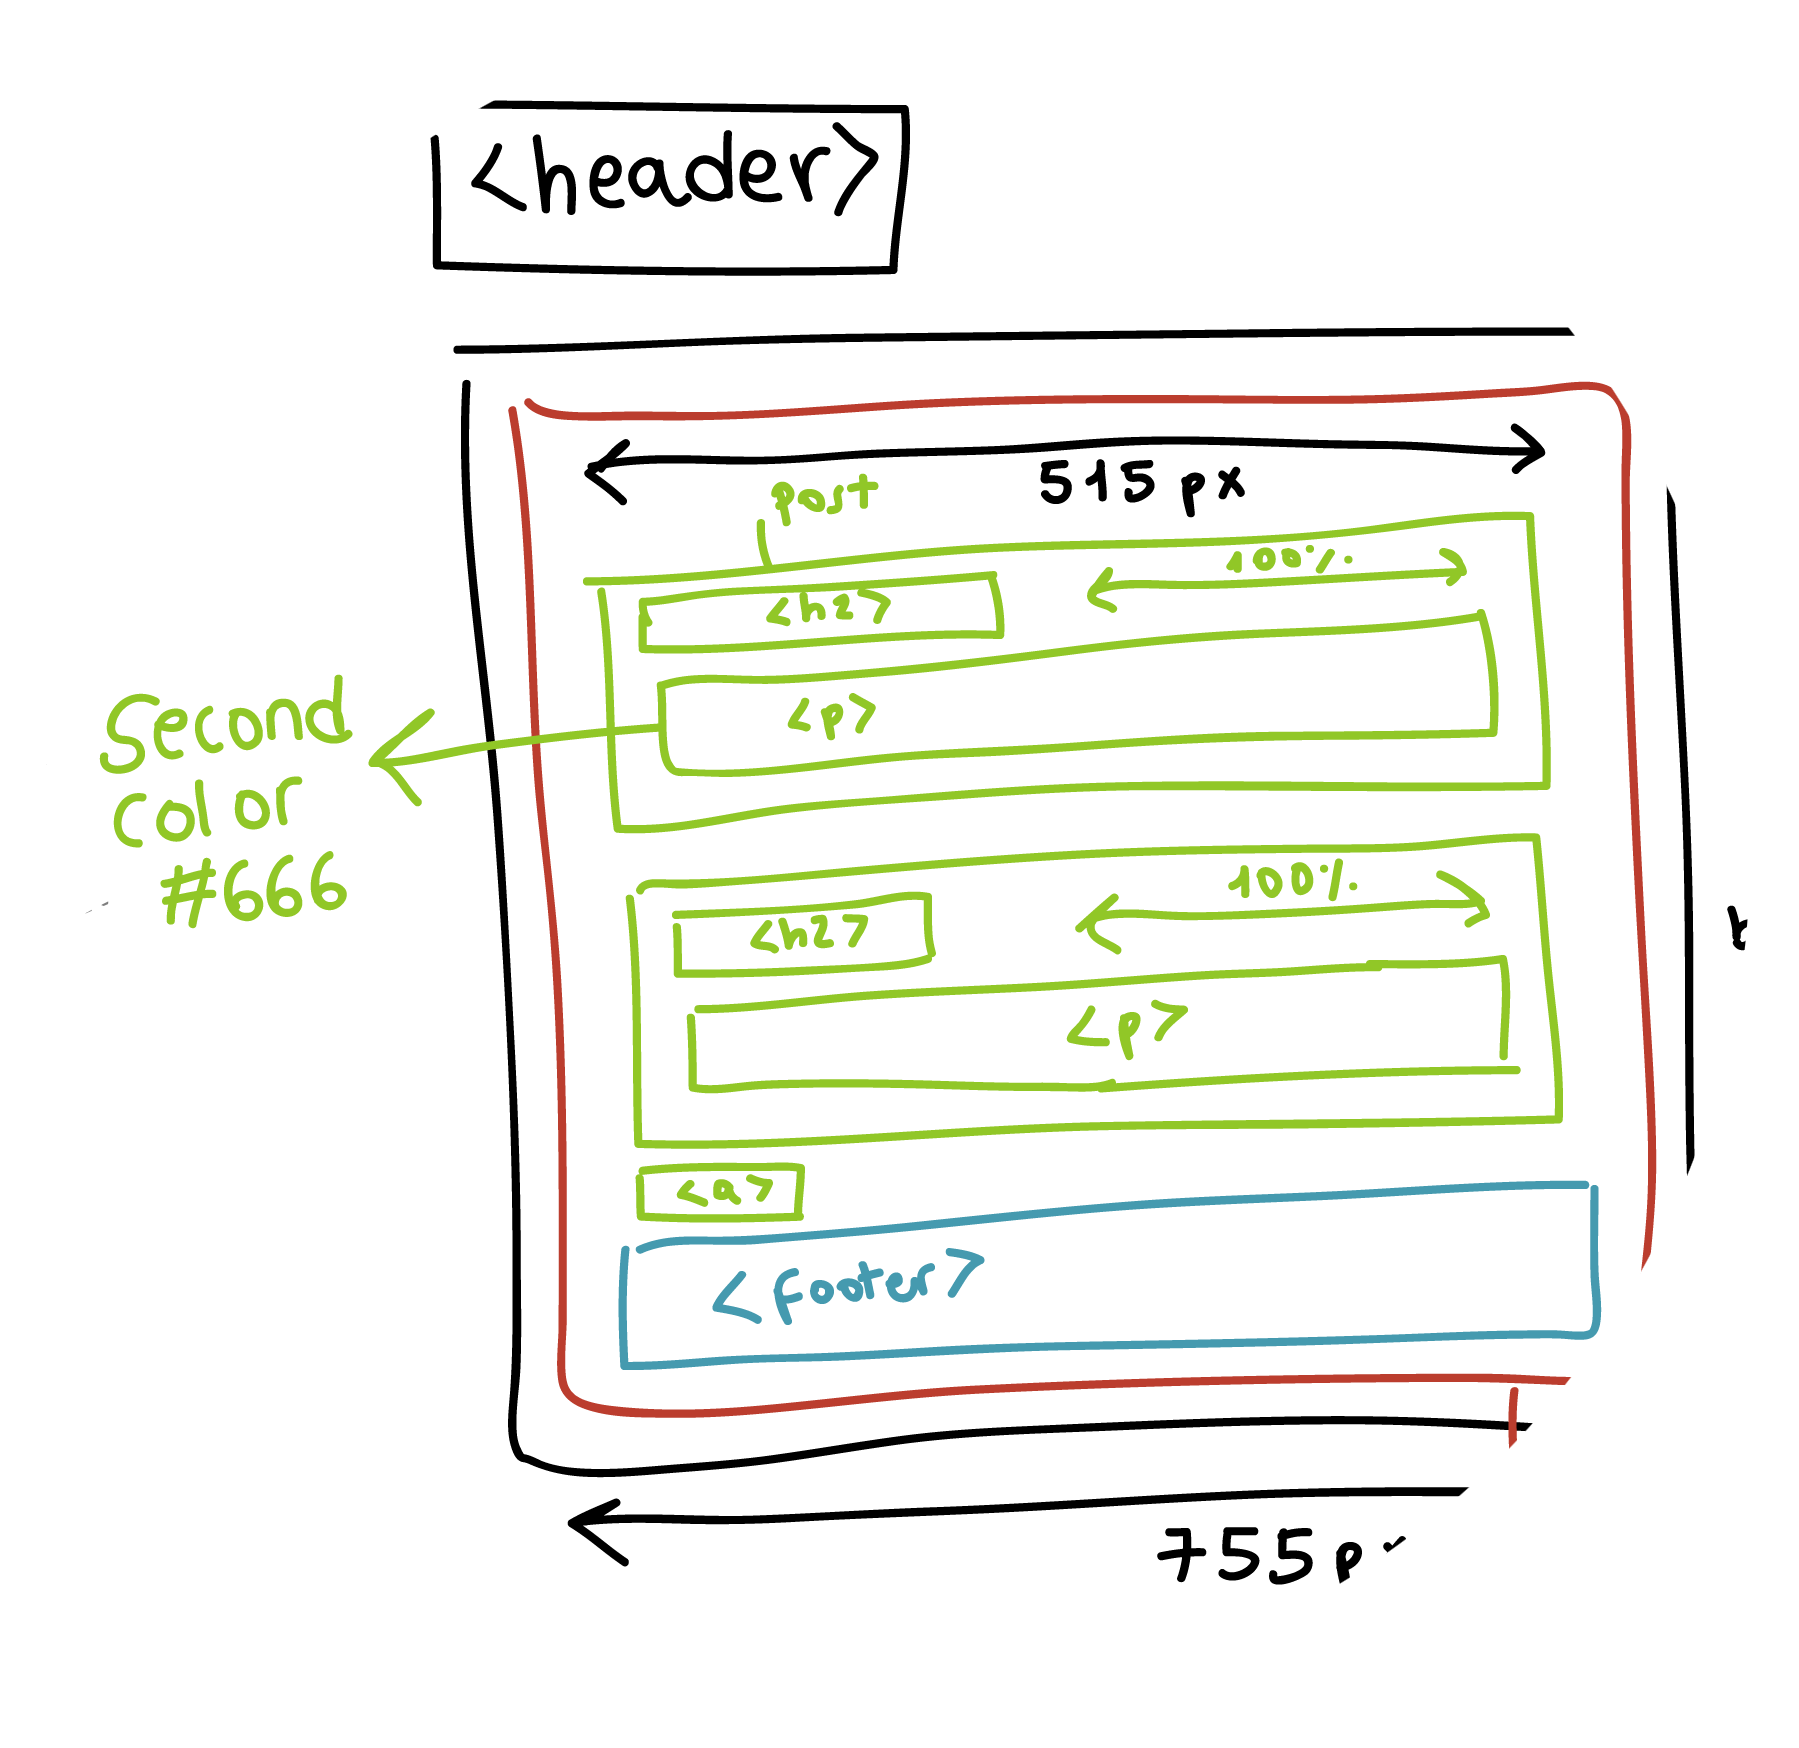 <header>
515px
post
100%
<h2>
<p>
Second
color
#666
100%
<h2>
<p>
<a>
<footer>
755p